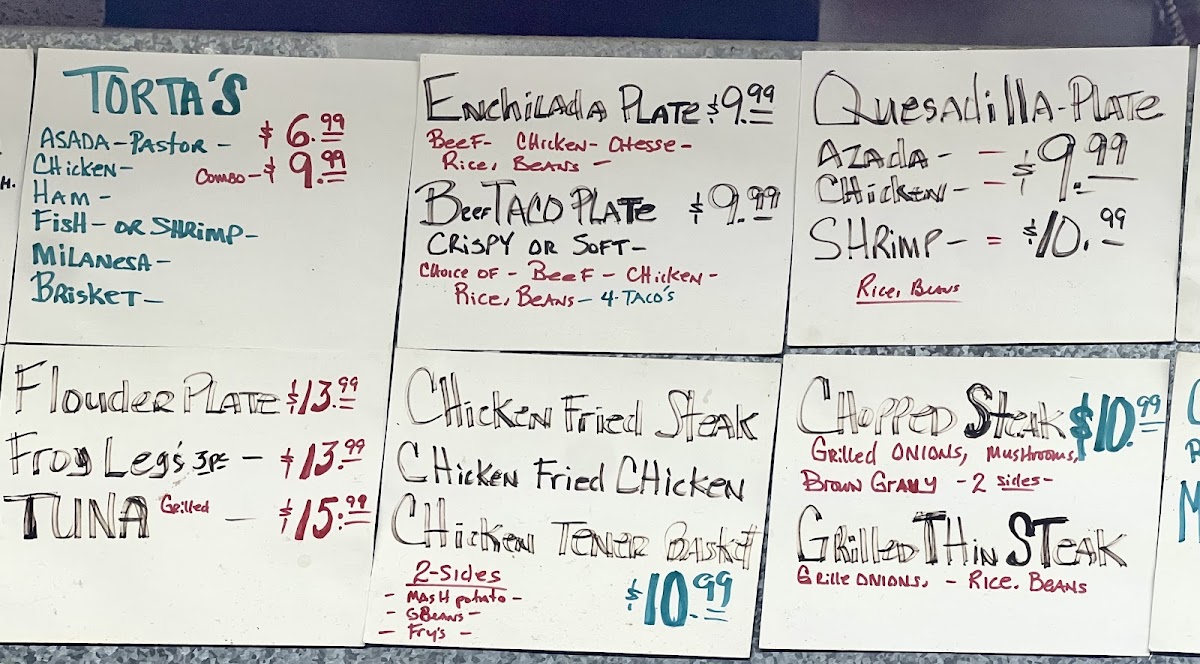 TORTA'S
ASADA - PASTOR - $6.99
CHICKEN - COMBO - $9.99
HAM -
FISH - OR SHRIMP -
MILANESA -
BRISKET -
ENCHILADA PLATE $9.99
BEEF - CHICKEN - CHESSE -
RICE, BEANS -
BEEF TACO PLATE $9.99
CRISPY OR SOFT -
CHOICE OF - BEEF - CHICKEN -
RICE, BEANS - 4 - TACO'S
QUESADILLA - PLATE
AZADA - - $9.99
CHICKEN - -
SHRIMP - = $10.99
RICE, BEANS
FLOUDER PLATE $13.99
FROG LEG'S 3PS - $13.99
TUNA GRILLED - $15.99
CHICKEN FRIED STEAK
CHICKEN FRIED CHICKEN
CHICKEN TENER BASKET
2 - SIDES $10.99
- MASH POTATO -
- GBEANS -
- FRY'S -
CHOPPED STEAK $10.99
GRILLED ONIONS, MUSHROOMS,
BROWN GRAVY - 2 SIDES -
GRILLED THIN STEAK
GRILLE ONIONS. - RICE. BEANS